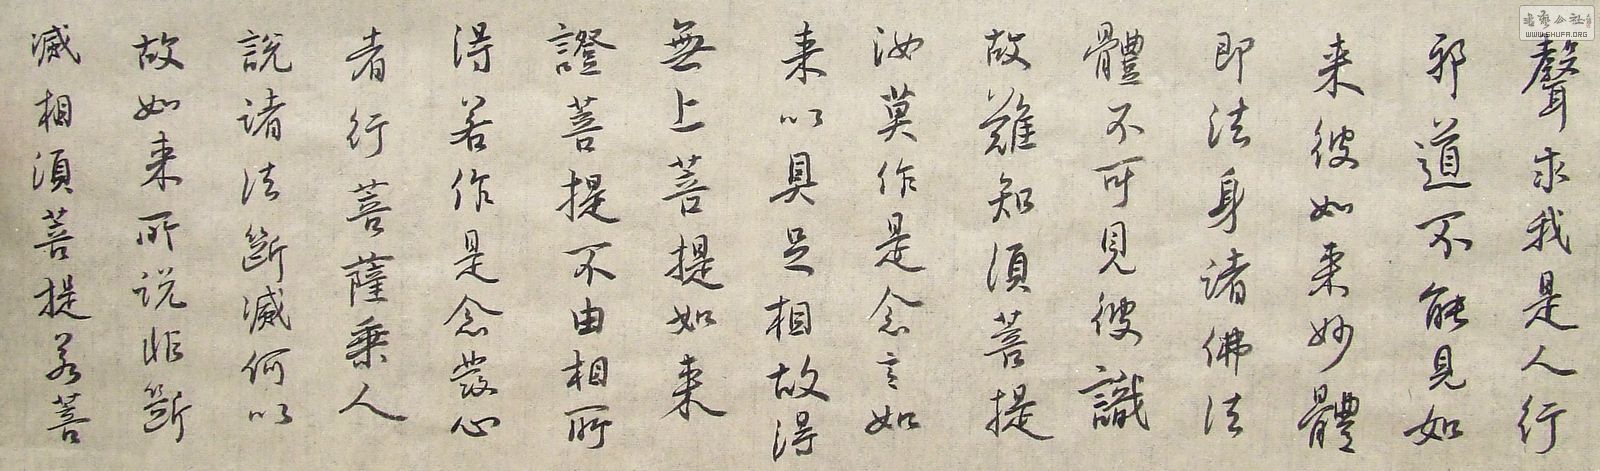 聲求我是人行
邪道不能見如
来彼如来妙體
即法身諸佛法
體不可見彼識
故難知須菩提
汝莫作是念言如
来以具足相故得
無上菩提如来
證菩提不由相所
得若作是念發心
者行菩薩乗人
說諸法斷滅何以
故如来所说非斷
滅相須菩提若菩
WWW.SHUFA.ORG